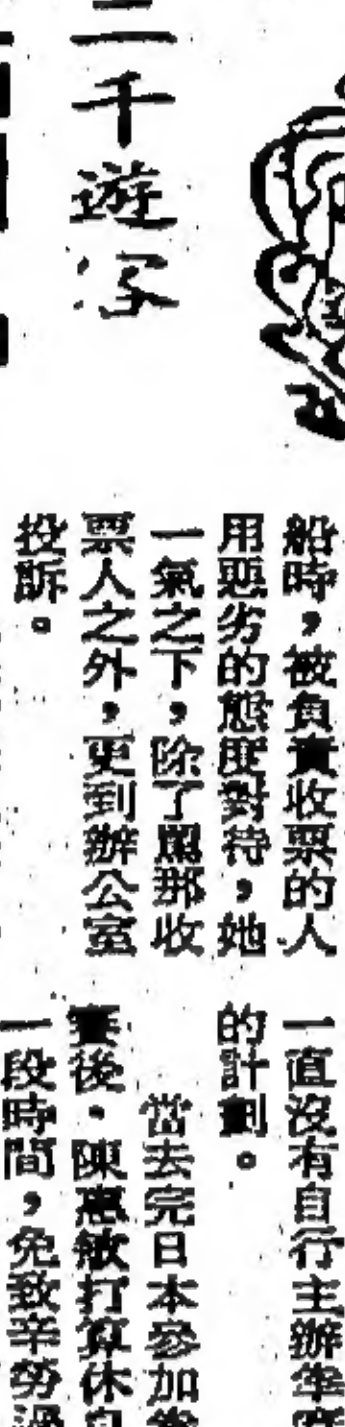 二千遊字
船時，被負責收票的人
用惡劣的態度對待，她
一氣之下，除了罵那收
票人之外，更到辦公室
投訴。
一直沒有自行主辦
的計劃。
當去完日本參加
賽後，陳惠敏打算休息
一段時間，免致辛勞過